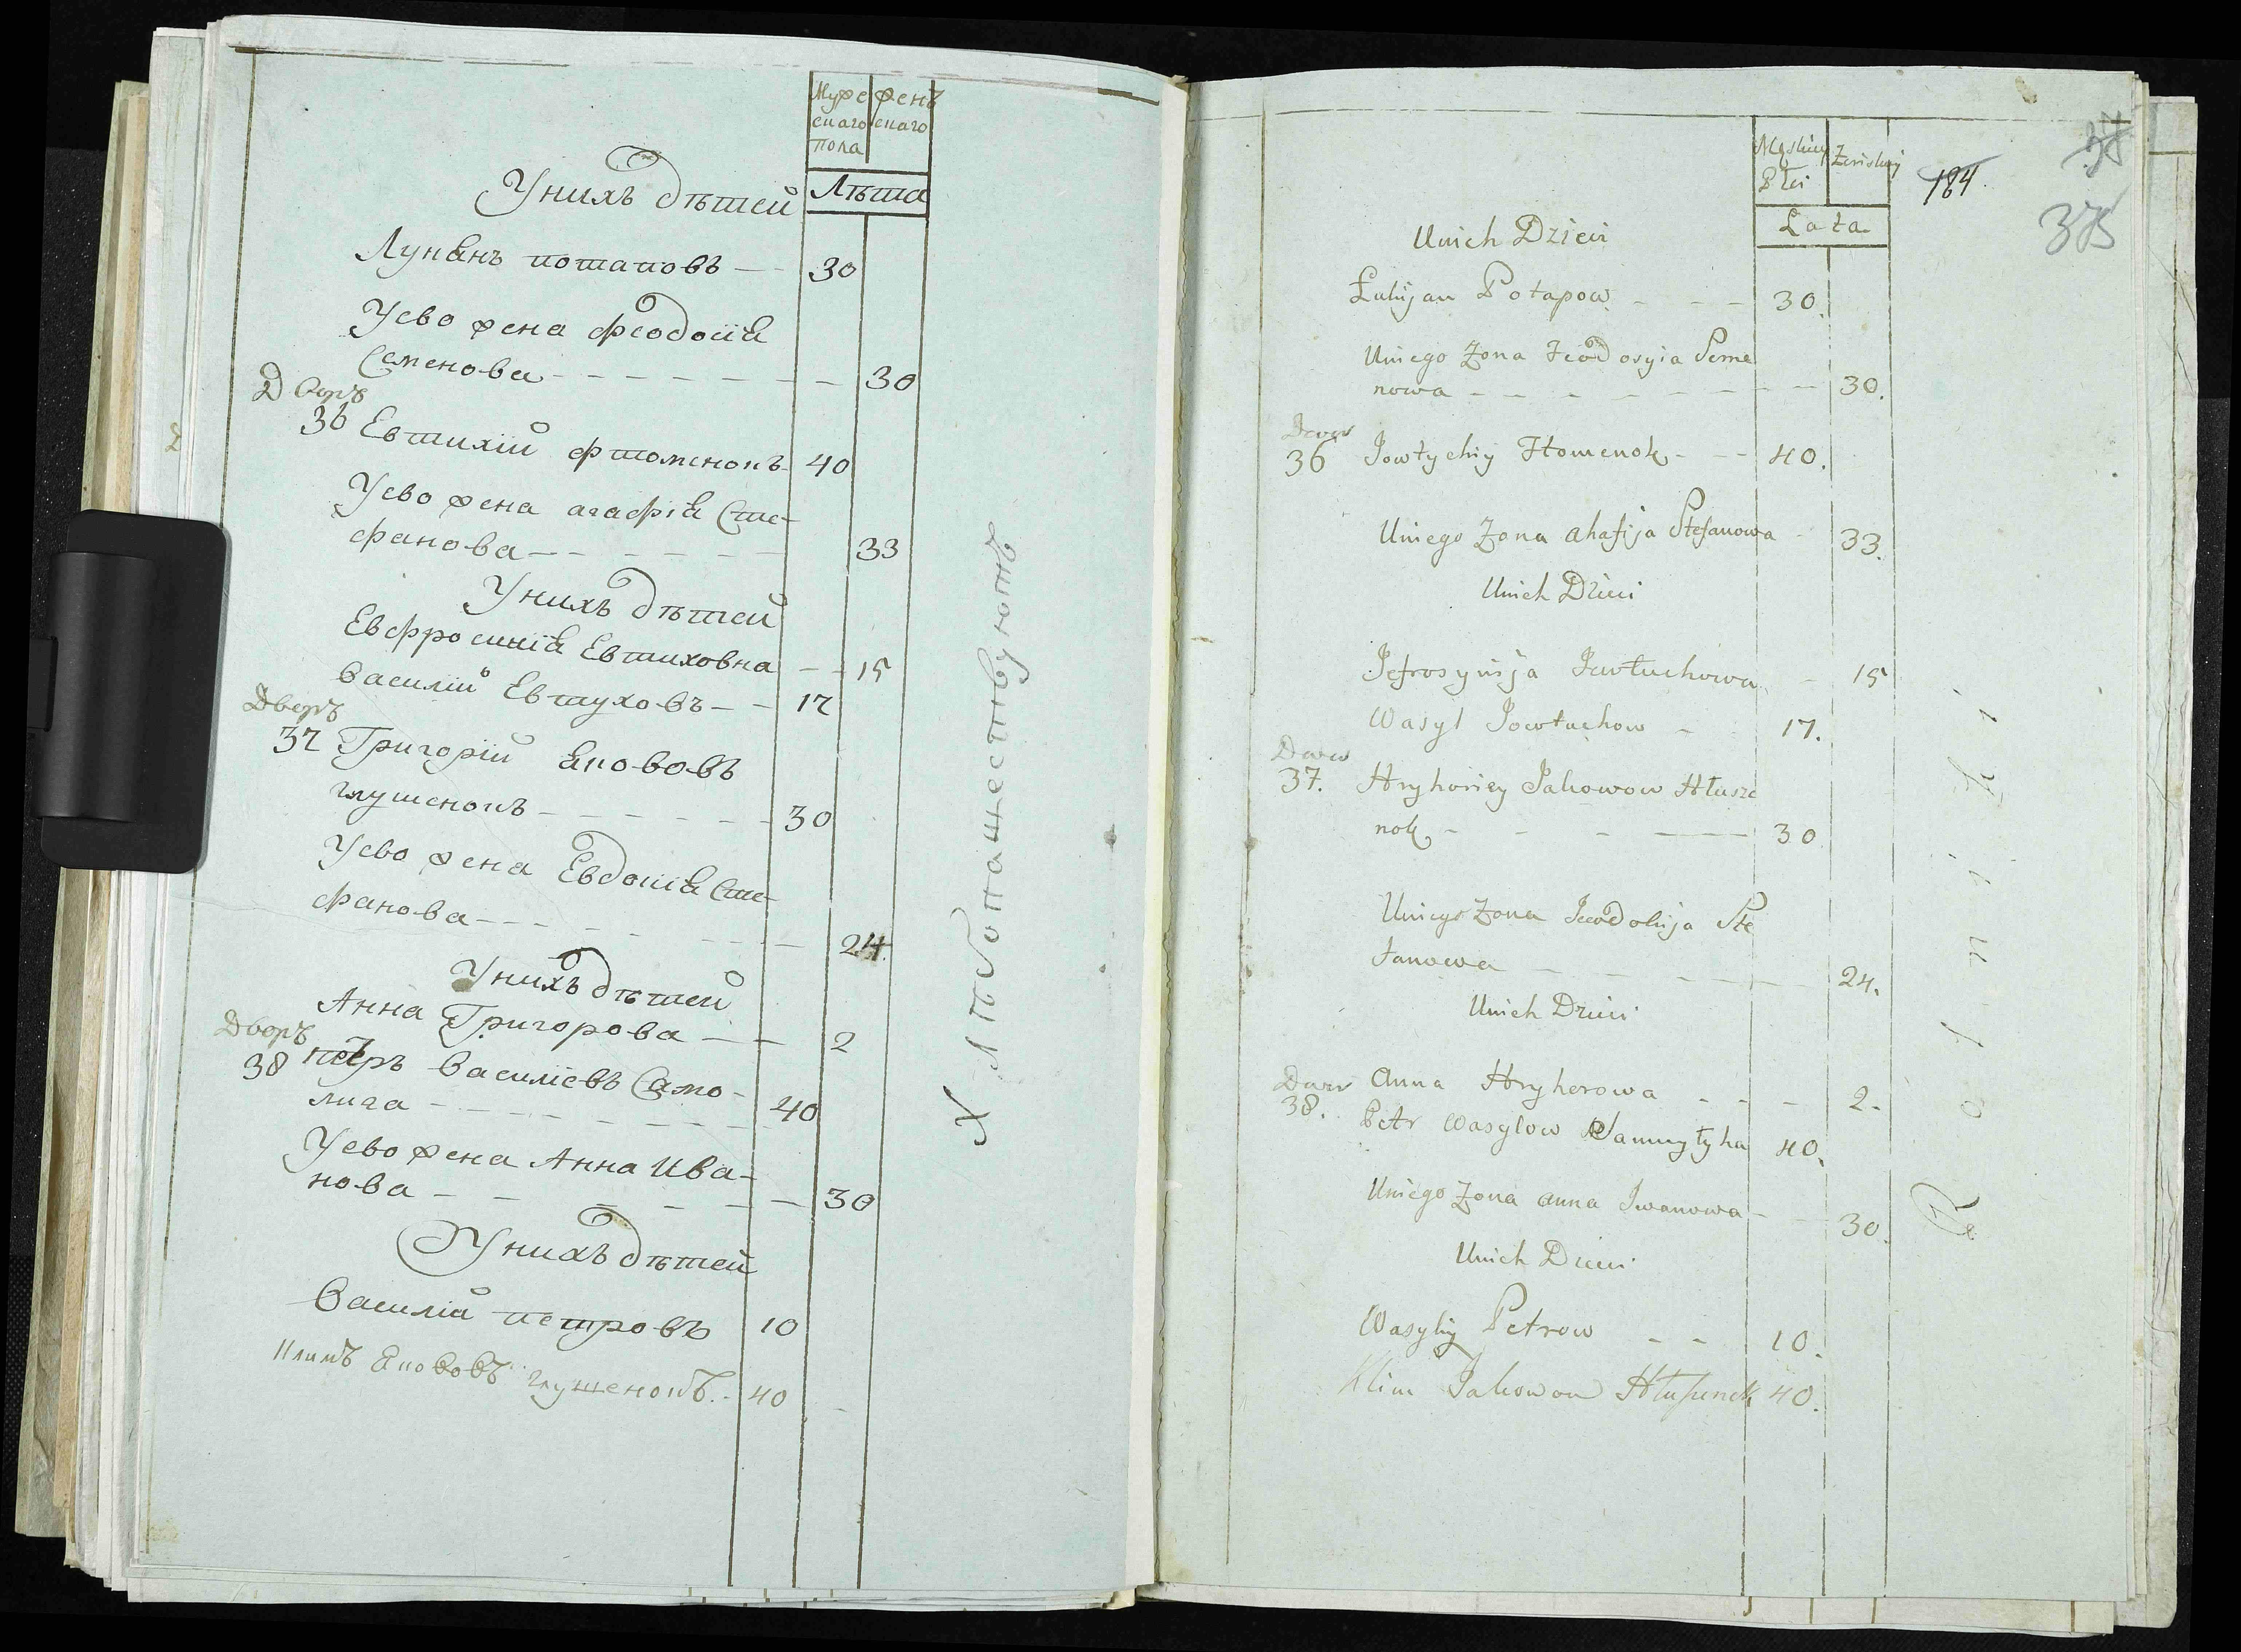 Муже женъ
скаго скаго
пола
Лѣта
Унихъ дѣтей
Лукянъ потаповъ — 30
Уево жена феодосія
Семенова — 30
Дворъ
36 Евтихій фтоменокъ 40
Уево жена агафія Сте-
фанова — 33
Унихъ дѣтей
Евфросинія Евтиховна — 15
Василій Евтуховъ — 17
Дворъ
37 Григорій Якововъ
глушенокъ — 30
Уево жена Евдокія Сте-
фанова — 24.
Унихъ дѣтей
Анна Григорова — 2
Дворъ
38 петръ Василіевъ Само-
лига — 40
Уево жена Анна Ива-
нова — 30
Унихъ дѣтей
Василій петровъ 10
Климъ Якововъ глушенокъ. 40
Хлѣбопашествуютъ
184
375
Męskiey Żenskiey
Płci
Lata
Unich Dzieci
Łukijan Potapow - - - 30.
Uniego Żona Feodosyia Seme
nowa - - - 30.
Dwor
36 Jowtychiy Ftomenok - - 40.
Uniego Żona ahafija Stefanowa - 33.
Unich Dzieci
Jefrosynija Jewtuchowa - 15
Wasyl Jowtuchow - 17.
Dwor
37. Hryhoriey Jakowow Hłusze
nok - - - 30
Uniego Żona Jewdokija Ste
fanowa - - - 24.
Unich Dzieci
Dwor anna Hryhorowa - - - 2.
38. Petr Wasylow Samuyłyha 40.
Uniego Żona anna Iwanowa - 30.
Unich Dzieci
Wasyliy Petrow - - 10.
Klim Jakowow Hłuszenok 40.
Rolniki